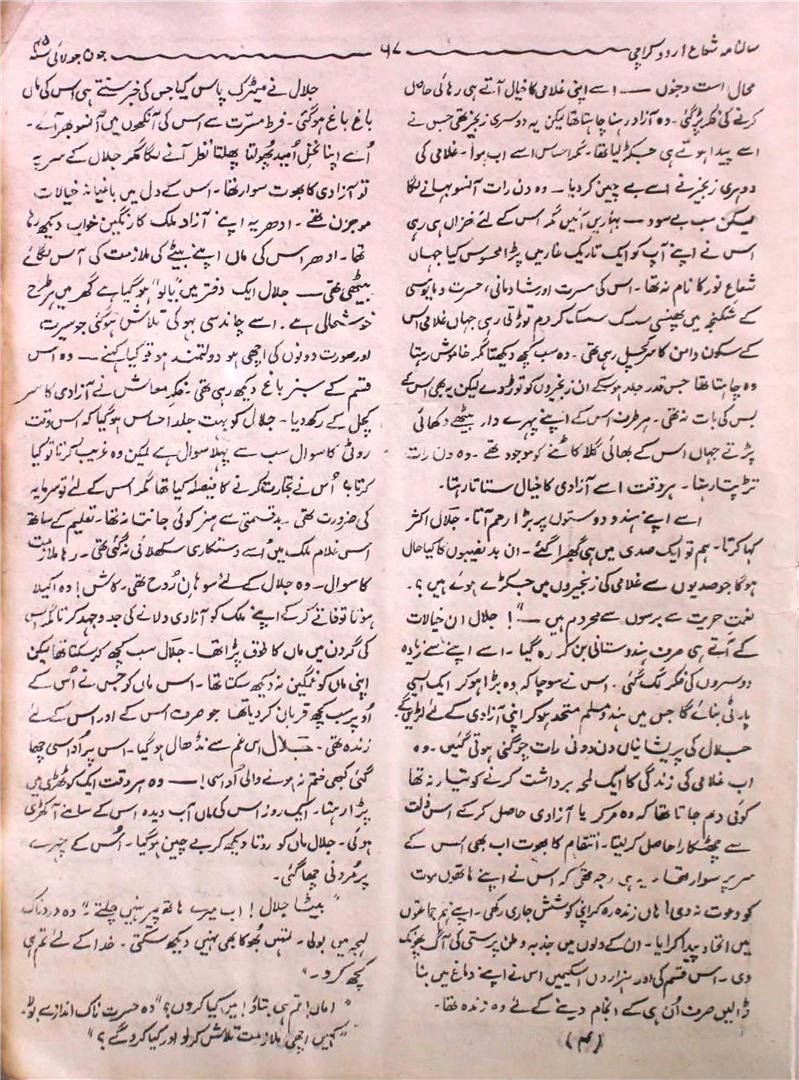 سالنامہ شعاع اردو کراچی ۶۷ جون جولائی سنہ ۴۵
محال است وجنوں — اسے اپنی غلامی کا خیال آتے ہی رہائی حاصل
کرنے کی فکر پڑ گئی۔ وہ آزاد رہنا چاہتا تھا لیکن یہ دوسری زنجیر تھی جس نے
اسے پیدا ہوتے ہی جکڑ لیا تھا۔ مگر احساس اسے اب ہوا۔ غلامی کی
دوہری زنجیر نے اسے بے چین کر دیا۔ وہ دن رات آنسو بہانے لگا
لیکن سب بے سود — بہاریں آئیں مگر اس کے لئے خزاں ہی رہی
اس نے اپنے آپ کو ایک تاریک غار میں پڑا محسوس کیا جہاں
شعاع نور کا نام نہ تھا۔ اس کی مسرت اور شادمانی، حسرت و مایوسی
کے شکنجہ میں پھنسی سسک سسک کر دم توڑتی رہی جہاں غلامی اس
کے سکون و امن کا سر کچل رہی تھی۔ وہ سب کچھ دیکھتا مگر خاموش رہتا
وہ چاہتا تھا جس قدر جلد ہو سکے ان زنجیروں کو توڑ دے لیکن یہ بھی اس کے
بس کی بات نہ تھی۔ ہر طرف اس کے اپنے پہرے دار بیٹھے دکھائی
پڑتے جہاں اس کے بھائی گلا کاٹنے کو موجود تھے۔ وہ دن رات
تڑپتا رہتا۔ ہر وقت اسے آزادی کا خیال ستاتا رہتا۔
اسے اپنے ہندو دوستوں پر بڑا رحم آتا۔ جلال اکثر
کہا کرتا۔ ہم تو ایک صدی میں ہی گھبرا گئے۔ ان بدنصیبوں کا کیا حال
ہوگا جو صدیوں سے غلامی کی زنجیروں میں جکڑے ہوئے ہیں ؟۔
نعمت حریت سے برسوں سے محروم ہیں —"! جلال ان خیالات
کے آتے ہی صرف ہندوستانی بن کر رہ گیا۔ اسے اپنے سے زیادہ
دوسروں کی فکر لگ گئی۔ اس نے سوچا کہ وہ بڑا ہو کر ایک ایسی
پارٹی بنائے گا جس میں ہندو مسلم متحد ہو کر اپنی آزادی کے لئے لڑیں گے۔
جلال کی پریشانیاں دن دونی رات چوگنی ہوتی گئیں۔ وہ
اب غلامی کی زندگی کا ایک لمحہ برداشت کرنے کو تیار نہ تھا
کوئی دم جاتا تھا کہ وہ مر کر یا آزادی حاصل کر کے اس ذلت
سے چھٹکارا حاصل کر لیتا۔ انتقام کا بھوت اب بھی اس کے
سر پر سوار تھا۔ یہ ہی وجہ تھی کہ اس نے اپنے ہاتھوں موت
کو دعوت نہ دی! ہاں زندہ رہ کر اپنی کوشش جاری رکھی۔ اپنے ہم جماعتوں
میں اتحاد پیدا کرایا۔ ان کے دلوں میں جذبہ وطن پرستی کی آگ پھونک
دی۔ اس قسم کی اور ہزاروں اسکیمیں اس نے اپنے دماغ میں بنا
ڈالیں صرف اُن ہی کے انجام دینے کے لئے وہ زندہ تھا۔
(۴)
جلال نے میٹرک پاس کیا جس کی خبر سنتے ہی اس کی ماں
باغ باغ ہو گئی۔ فرط مسرت سے اس کی آنکھوں میں آنسو بھر آئے۔
اُسے اپنا نخل اُمید پھولتا پھلتا نظر آنے لگا مگر جلال کے سر پہ
تو آزادی کا بھوت سوار تھا۔ اس کے دل میں باغیانہ خیالات
موجزن تھے۔ ادھر یہ اپنے آزاد ملک کا رنگین خواب دیکھ رہا
تھا۔ ادھر اس کی ماں اپنے بیٹے کی ملازمت کی آس لگائے
بیٹھی تھی — جلال ایک دفتر میں "بابو" ہو گیا ہے گھر میں ہر طرح
خوشحالی ہے۔ اسے چاند سی بہو کی تلاش ہو گئی جو سیرت
اور صورت دونوں کی اچھی ہو دولتمند ہو تو کیا کہنے — وہ اس
قسم کے سبز باغ دیکھ رہی تھی۔ فکر معاش نے آزادی کا سر
کچل کے رکھ دیا۔ جلال کو بہت جلد احساس ہو گیا کہ اس وقت
روٹی کا سوال سب سے پہلا سوال ہے لیکن وہ غریب کرتا تو کیا
کرتا؟ اُس نے تجارت کرنے کا فیصلہ کیا تھا مگر اس کے لئے تو سرمایہ
کی ضرورت تھی۔ بدقسمتی سے ہنر کوئی جانتا نہ تھا۔ تعلیم کے ساتھ
اس غلام ملک میں اُسے دستکاری سکھلائی نہ گئی تھی۔ رہا ملازمت
کا سوال۔ وہ جلال کے لئے سوہان رُوح تھی۔ کاش! وہ اکیلا
ہوتا تو فاقے کر کے اپنے ملک کو آزادی دلانے کی جدوجہد کرتا مگر اس
کی گردن میں ماں کا طوق پڑا تھا۔ جلال سب کچھ کر سکتا تھا لیکن
اپنی ماں کو غمگین نہ دیکھ سکتا تھا۔ اس ماں کو جس نے اُس کے
اُوپر سب کچھ قربان کر دیا تھا جو صرف اس کے اور اس کے لئے
زندہ تھی۔ جلال اس غم سے نڈھال ہو گیا۔ اس پر اُداسی چھا
گئی کبھی ختم نہ ہونے والی اُداسی! — وہ ہر وقت ایک کوٹھڑی میں
پڑا رہتا۔ ایک روز اس کی ماں آب دیدہ اس کے سامنے آ کھڑی
ہوئی۔ جلال ماں کو روتا دیکھ کر بے چین ہو گیا۔ اُس کے چہرے
پر مُردنی چھا گئی۔
"بیٹا جلال! اب میرے ہاتھ پیر نہیں چلتے" وہ دردناک
لہجہ میں بولی۔ تمہیں بُھوکا بھی نہیں دیکھ سکتی۔ خدا کے لئے تم ہی
کچھ کرو۔"
"اماں! تم ہی بتاؤ! میں کیا کروں؟" وہ حسرت ناک انداز سے بولا۔
"کہیں اچھی ملازمت تلاش کر لو اور کیا کرو گے؟"